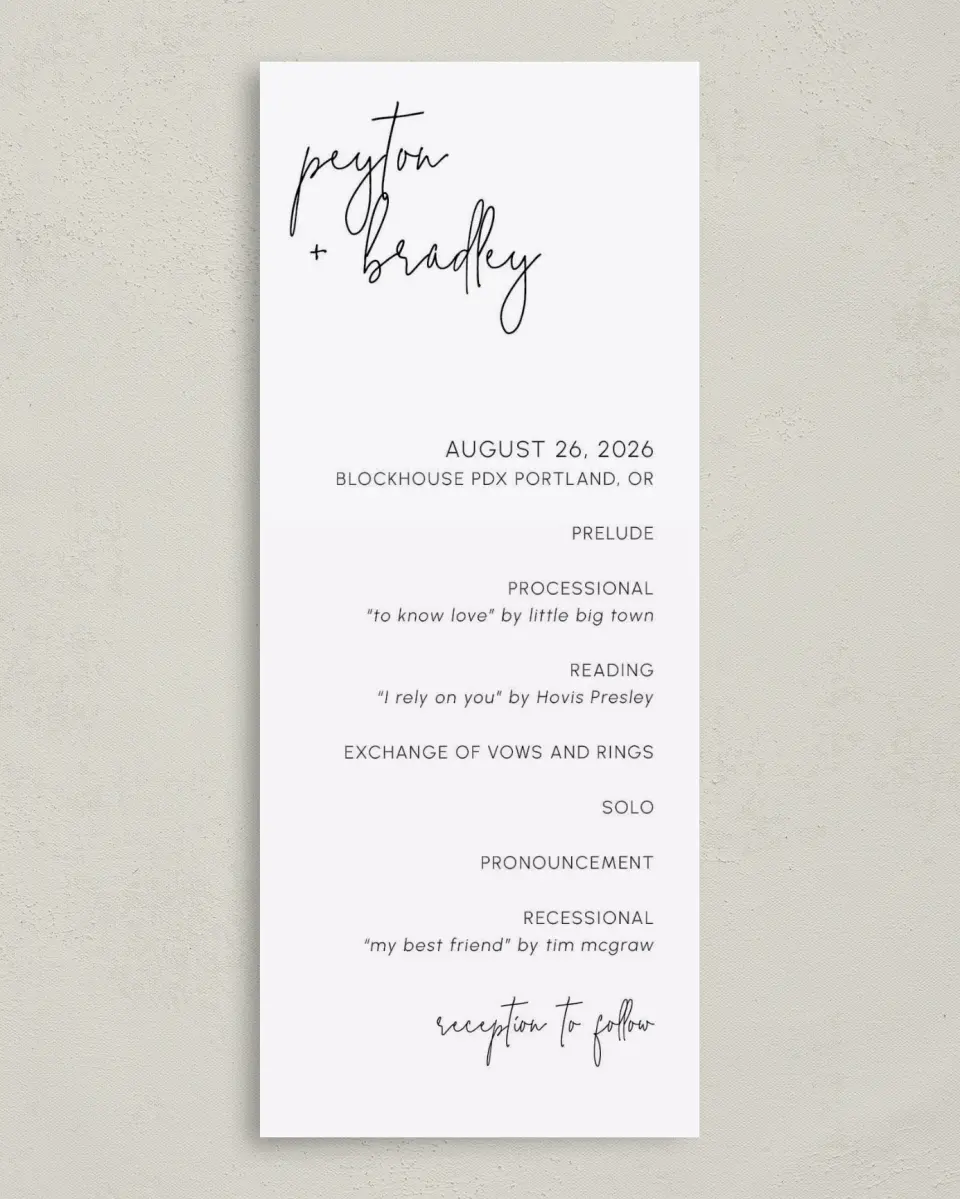 peyton
+ bradley
AUGUST 26, 2026
BLOCKHOUSE PDX PORTLAND, OR
PRELUDE
PROCESSIONAL
“to know love” by little big town
READING
“I rely on you” by Hovis Presley
EXCHANGE OF VOWS AND RINGS
SOLO
PRONOUNCEMENT
RECESSIONAL
“my best friend” by tim mcgraw
reception to follow